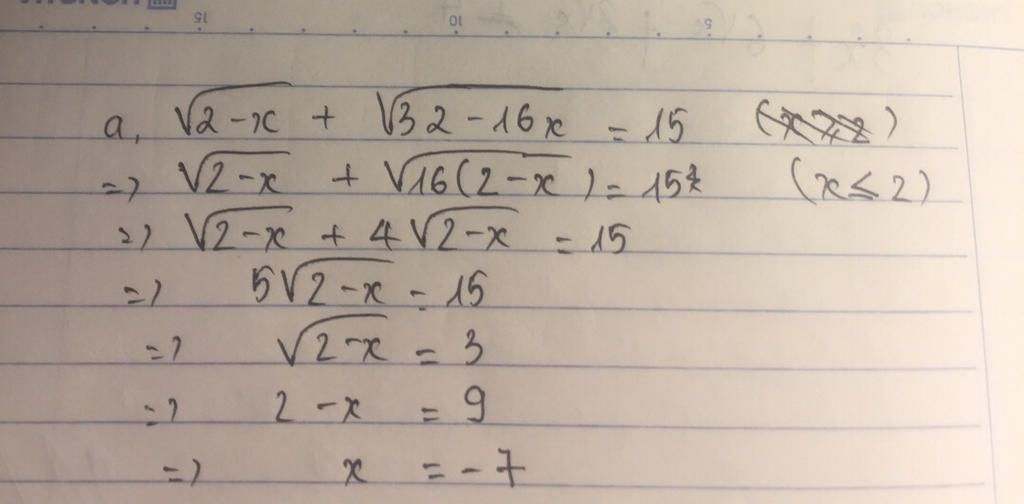 15 10 5
a, √2-x + √32-16x = 15 ( )
=> √2-x + √16(2-x) = 15 (x≤2)
=> √2-x + 4√2-x = 15
=> 5√2-x = 15
=> √2-x = 3
=> 2-x = 9
=> x = -7